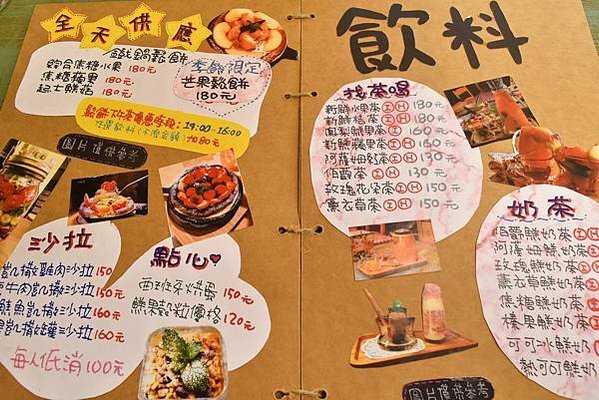 全天供應
鑄鐵鍋鬆餅
綜合焦糖水果 180元
焦糖蘋果 180元
起士鮮菇 180元
季節限定
芒果鬆餅
180元
鬆餅下午茶優惠時段：14:00-16:00
任選飲料(不限金額)加80元
圖片僅供參考
沙拉
凱撒雞肉沙拉 150
牛肉凱撒沙拉 150元
鮭魚凱撒沙拉 160元
凱撒沙拉 160元
每人低消100元
點心
西班牙烘蛋 150元
鮮果奶粒優格 120元
飲料
找茶喝
新鮮水果茶 I H 180元
新鮮桔茶 I H 180元
鳳梨鮮果茶 I H 160元
新鮮蘋果茶 I H 160元
阿薩姆奶茶 I H 160元
伯爵茶 I H 130元
玫瑰花草茶 I H 150元
薰衣草茶 I H 150元
奶茶
伯爵鮮奶茶 I H
阿薩姆鮮奶茶 I
玫瑰鮮奶茶 I
薰衣草鮮奶茶 I
焦糖鮮奶茶 I
榛果鮮奶茶 I
可可冰鮮奶
熱可可鮮奶
圖片僅供參考